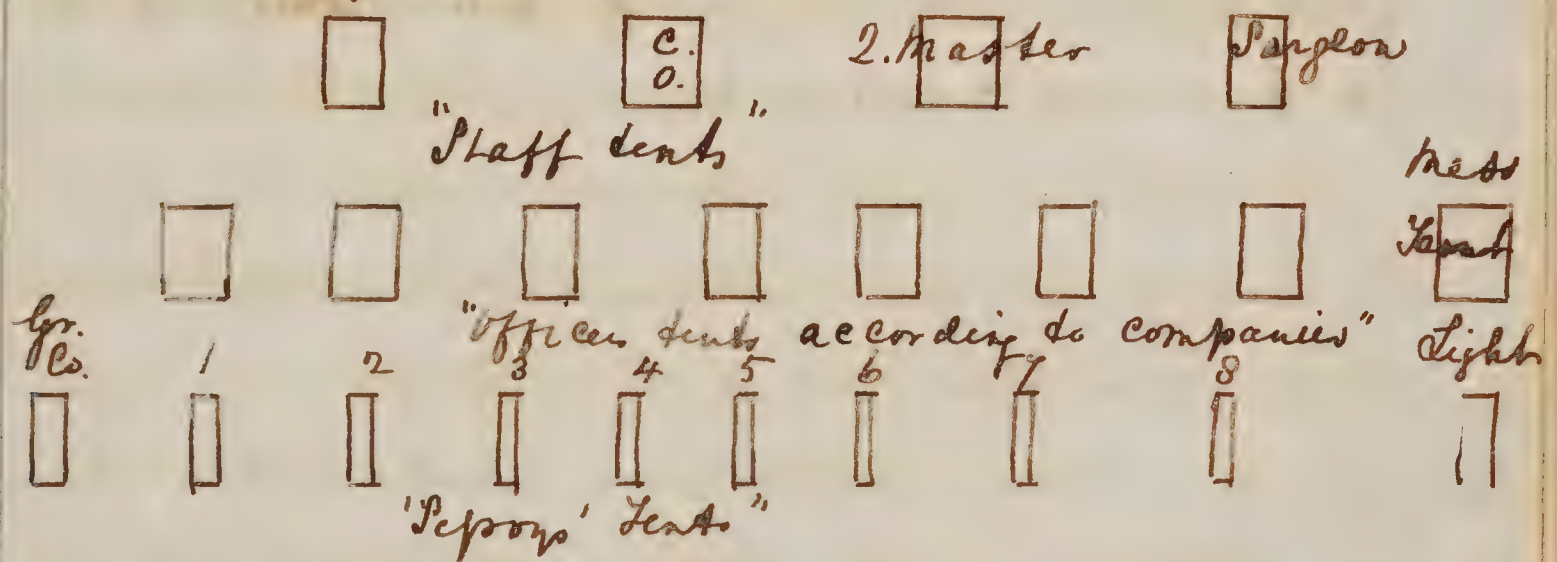 C.
O.
Q. Master
Surgeon
"Staff tents"
Mess
Tent
"Officers tents according to companies"
Gr.
Co.
1 2 3 4 5 6 7 8
Light
'Sepoys' Tents"